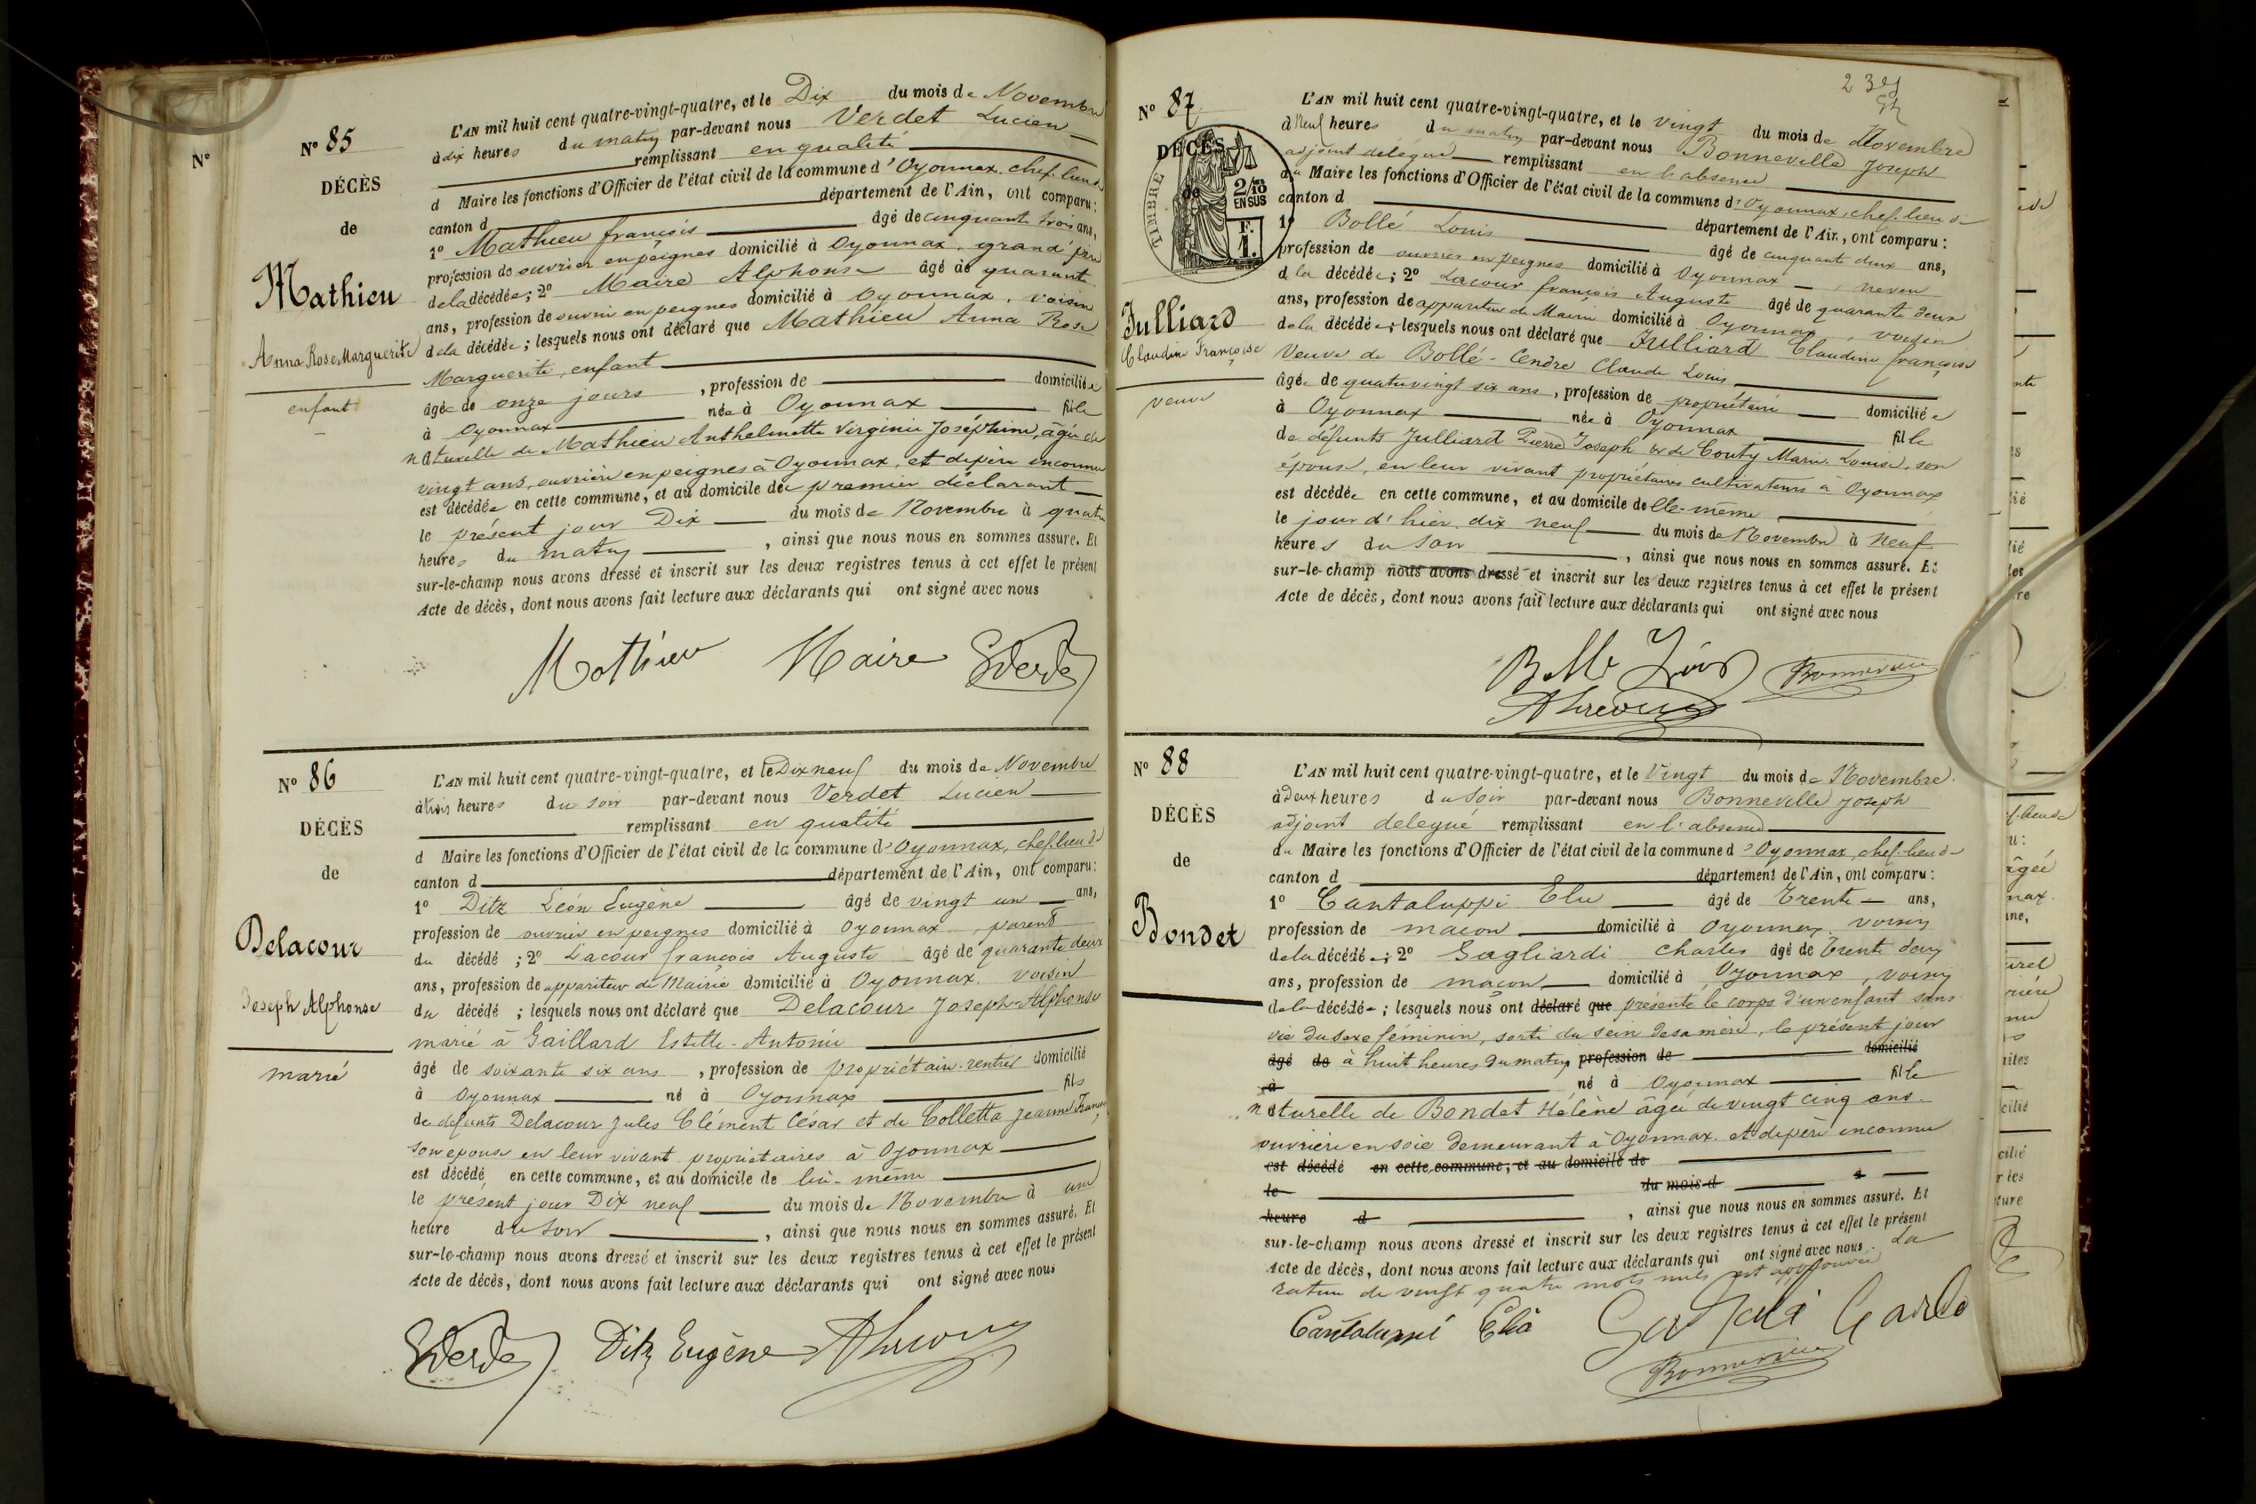 N° 85
DÉCÈS
de
Mathieu
Anna Rose Marguerite
enfant
L'AN mil huit cent quatre-vingt-quatre, et le Dix du mois de Novembre
à dix heures du matin par-devant nous Verdet Lucien
remplissant en qualité
d Maire les fonctions d'Officier de l'état civil de la commune d'Oyonnax, chef-lieu de
canton d département de l'Ain, ont comparu:
1° Mathieu françois âgé de cinquante trois ans,
profession de ouvrier en peignes domicilié à Oyonnax, grand'père
de la décédée; 2° Maire Alphonse âgé de quarante
ans, profession de ouvrier en peignes domicilié à Oyonnax, voisin
de la décédée; lesquels nous ont déclaré que Mathieu Anna Rose
Marguerite, enfant
âgée de onze jours, profession de domiciliée
à Oyonnax née à Oyonnax fille
naturelle de Mathieu Anthelmette Virginie Joséphine, âgée de
vingt ans, ouvrière en peignes à Oyonnax, et de père inconnu
est décédée en cette commune, et au domicile de premier déclarant
le présent jour Dix du mois de Novembre à quatre
heures du matin, ainsi que nous nous en sommes assuré. Et
sur-le-champ nous avons dressé et inscrit sur les deux registres tenus à cet effet le présent
Acte de décès, dont nous avons fait lecture aux déclarants qui ont signé avec nous
Mathieu Maire
N° 86
DÉCÈS
de
Delacour
Joseph Alphonse
marié
L'AN mil huit cent quatre-vingt-quatre, et le Dix neuf du mois de Novembre
à trois heures du soir par-devant nous Verdet Lucien
remplissant en qualité
d Maire les fonctions d'Officier de l'état civil de la commune d'Oyonnax, chef-lieu de
canton d département de l'Ain, ont comparu:
1° Ditz Léon Eugène âgé de vingt un ans,
profession de ouvrier en peignes domicilié à Oyonnax, parent
du décédé; 2° Lacour françois Auguste âgé de quarante deux
ans, profession de appariteur de Mairie domicilié à Oyonnax, voisin
du décédé; lesquels nous ont déclaré que Delacour Joseph-Alphonse
marié à Gaillard Estelle-Antonie
âgé de soixante six ans, profession de propriétaire-rentier domicilié
à Oyonnax né à Oyonnax fils
de défunts Delacour Jules Clément César et de Colletta Jeanne
son épouse en leur vivant propriétaires à Oyonnax
est décédé en cette commune, et au domicile de lui-même
le présent jour Dix neuf du mois de Novembre à une
heure du soir, ainsi que nous nous en sommes assuré. Et
sur-le-champ nous avons dressé et inscrit sur les deux registres tenus à cet effet le présent
Acte de décès, dont nous avons fait lecture aux déclarants qui ont signé avec nous
Ditz Eugène
N° 87
DÉCÈS
de
TIMBRE
2/10 EN SUS
F. 1.
Julliard
Claudine Françoise
veuve
L'AN mil huit cent quatre-vingt-quatre, et le vingt du mois de Novembre
à Neuf heures du matin par-devant nous Bonneville Joseph
adjoint délégué remplissant en l'absence
du Maire les fonctions d'Officier de l'état civil de la commune d'Oyonnax, chef-lieu de
canton d département de l'Ain, ont comparu:
1° Bollé Louis âgé de cinquante deux ans,
profession de ouvrier en peignes domicilié à Oyonnax, neveu
de la décédée; 2° Lacour françois Auguste âgé de quarante deux
ans, profession de appariteur de Mairie domicilié à Oyonnax, voisin
de la décédée; lesquels nous ont déclaré que Julliard Claudine françoise
Veuve de Bollé-Cendre Claude Louis
âgée de quatrevingt six ans, profession de propriétaire domiciliée
à Oyonnax née à Oyonnax fille
de défunts Julliard Pierre Joseph et de Couty Marie-Louise, son
épouse, en leur vivant propriétaires cultivateurs à Oyonnax
est décédée en cette commune, et au domicile d'elle-même
le jour d'hier dix neuf du mois de Novembre à neuf
heures du soir, ainsi que nous nous en sommes assuré. Et
sur-le-champ nous avons dressé et inscrit sur les deux registres tenus à cet effet le présent
Acte de décès, dont nous avons fait lecture aux déclarants qui ont signé avec nous
Bonneville
N° 88
DÉCÈS
de
Bondet
L'AN mil huit cent quatre-vingt-quatre, et le Vingt du mois de Novembre
à Deux heures du soir par-devant nous Bonneville Joseph
adjoint délégué remplissant en l'absence
du Maire les fonctions d'Officier de l'état civil de la commune d'Oyonnax, chef-lieu de
canton d département de l'Ain, ont comparu:
1° Cantaluppi Elie âgé de Trente ans,
profession de maçon domicilié à Oyonnax, voisin
de la décédée; 2° Gagliardi Charles âgé de Trente deux
ans, profession de maçon domicilié à Oyonnax, voisin
de la décédée; lesquels nous ont déclaré que présenté le corps d'un enfant sans
vie du sexe féminin, sorti du sein de sa mère, le présent jour
âgé de à huit heures du matin profession de domicilié
à né à Oyonnax fille
naturelle de Bondet Hélène âgée de vingt cinq ans
ouvrière en soie demeurant à Oyonnax et de père inconnu
est décédé en cette commune, et au domicile de
le du mois d à
heure d, ainsi que nous nous en sommes assuré. Et
sur-le-champ nous avons dressé et inscrit sur les deux registres tenus à cet effet le présent
Acte de décès, dont nous avons fait lecture aux déclarants qui ont signé avec nous. La
rature de vingt quatre mots nuls est approuvée
Cantaluppi Elia
Bonneville